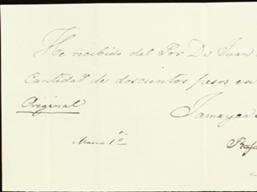 He recibido del Sor Dn Juan
Cantidad de doscientos pesos en
Original
Jamayca
Marzo 1º
Rafa